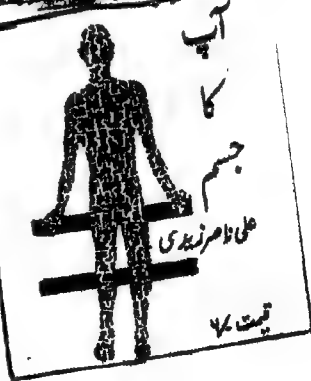 آپ
کا
جسم
علی ناصر زیدی
قیمت